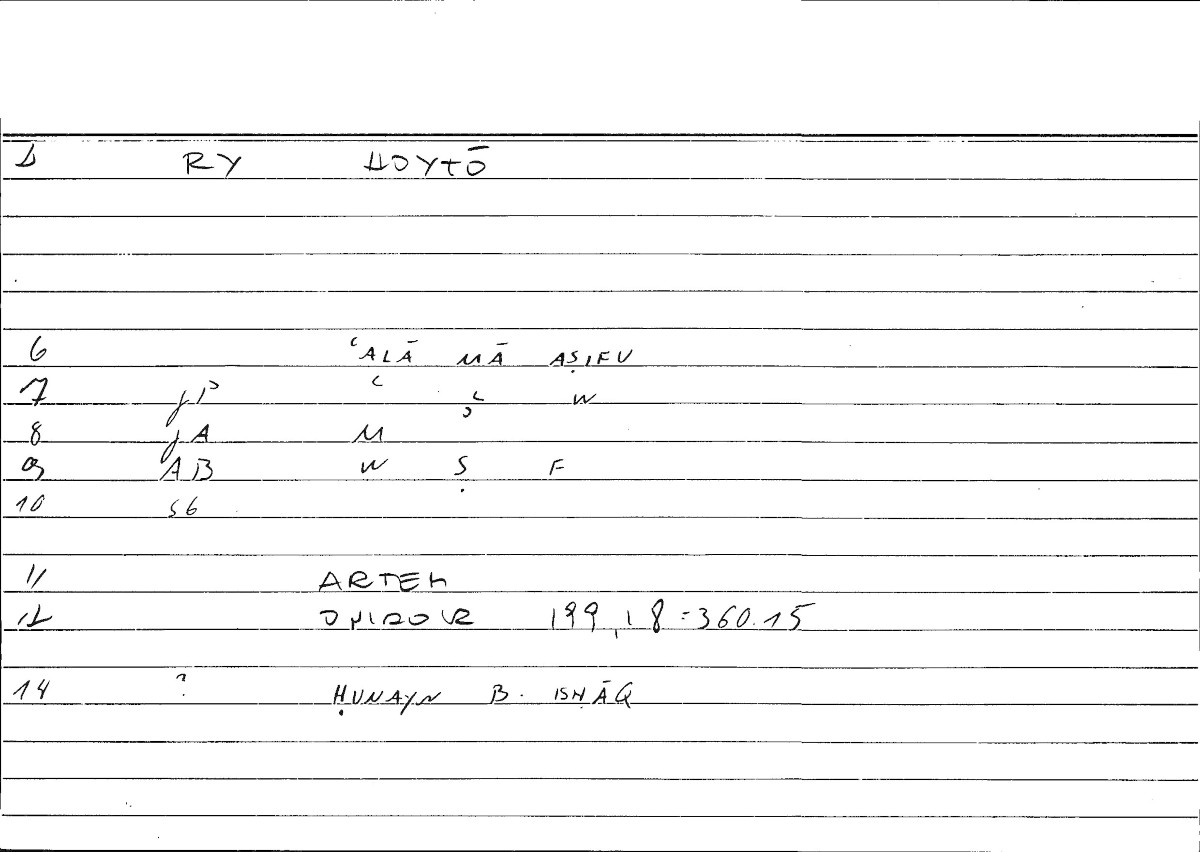 1 RY HOYTŌ
6 ʿALĀ MĀ AṢIFU
7 jP ʿ ʿ W
8 jA M
9 AB W Ṣ F
10 S6
11 ARTEM
12 ONIROKR 199,18=360.15
14 ? ḤUNAYN B. ISḤĀQ